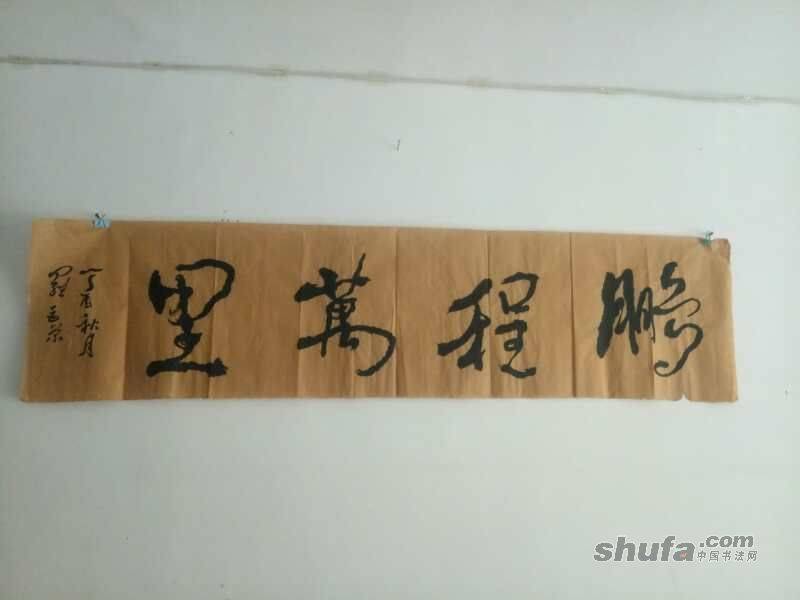 鹏程萬里
丁酉秋月
shufa.com
中国书法网